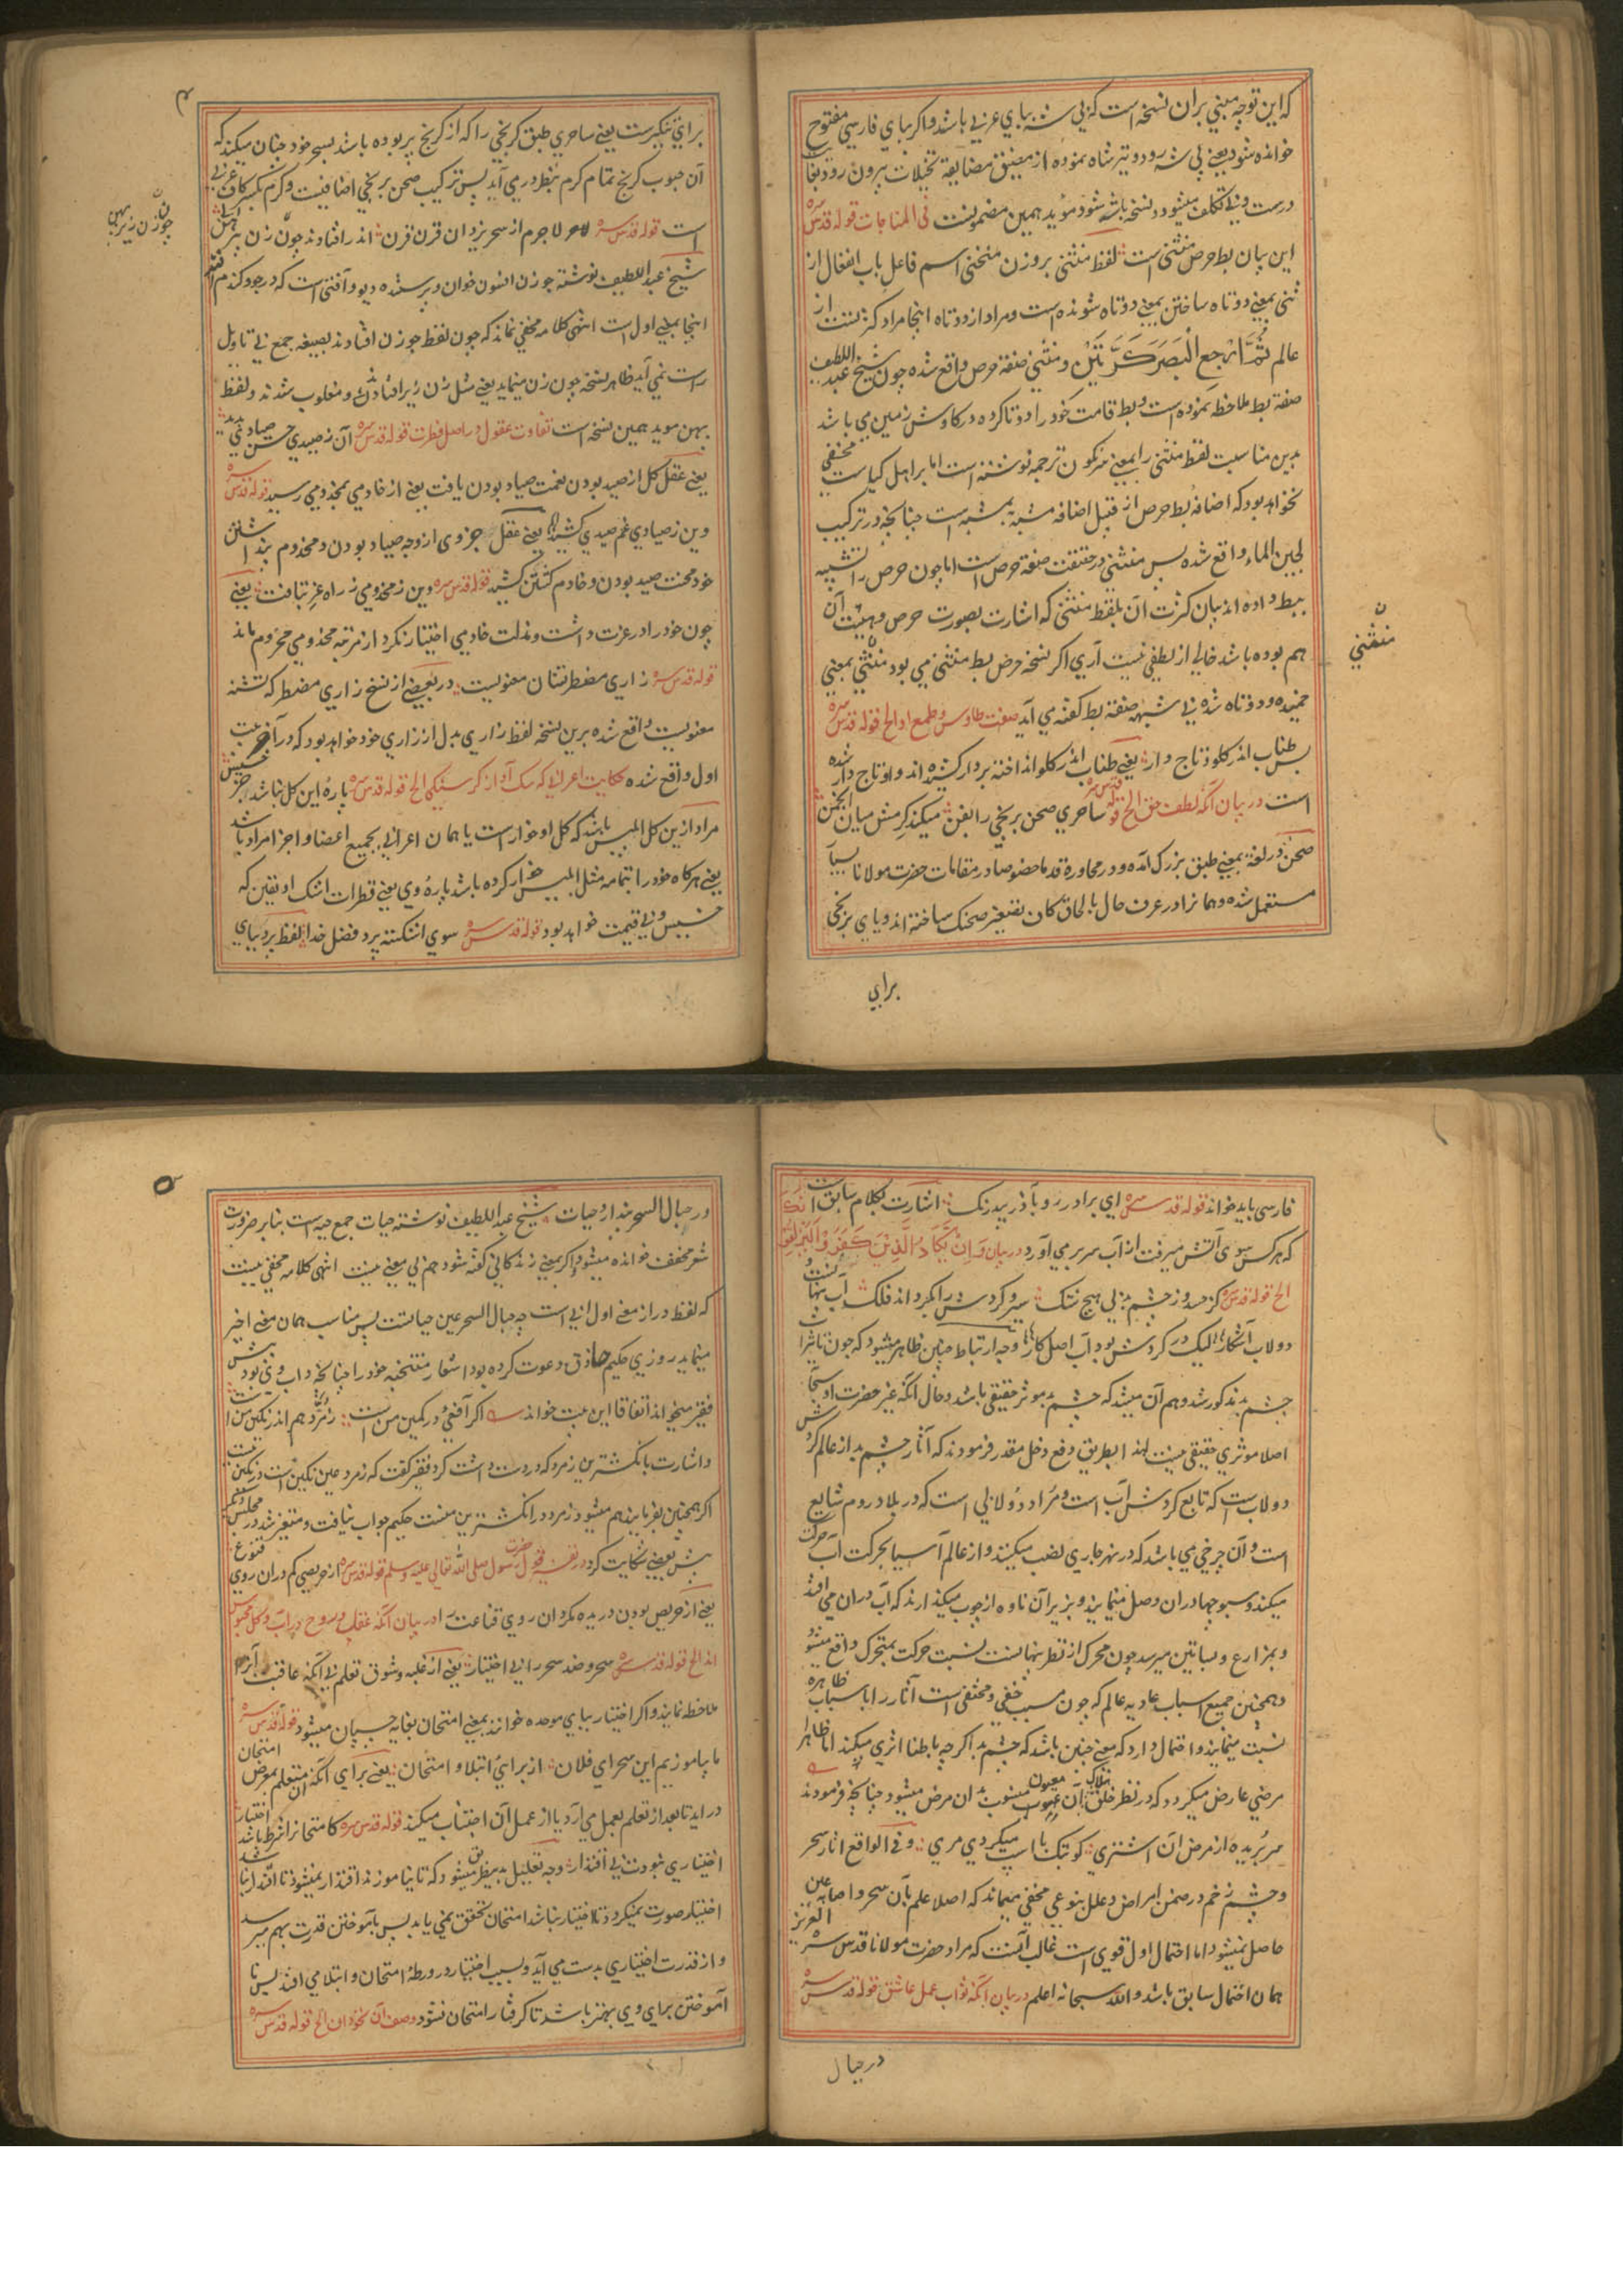 که این توجیه مبنی بران نسخه است که بی شه ببای عربی باشد و اکر ببای فارسی مفتوح
خوانده شود یعنی پی شه رود و تیر شاه نموده از مضیق مضایقه تخیلات بیرون رود بغایت
درست و بی تکلف میشود و نسخه باشه شود موید همین مضمونست فی المناجات قوله قدس سره
این بیان بط حرص منثنی است لفظ منثنی بروزن منحنی اسم فاعل باب انفعال از
ثنی بمعنی دوتاه ساختن بمعنی دوتاه شونده است و مراد از دوتاه اینجا مراد کژ نیست از
عالم ثُمَّ ارْجِعِ الْبَصَرَ كَرَّتَيْنِ و منثنی صفة حرص واقع شده چون شیخ عبد اللطیف
صفة بط ملاحظه نموده است و بط قامت خود را دوتا کرده در کاوش زمین می باشد
بدین مناسبت لفظ منثنی را بمعنی سرنکون ترجمه نوشته است اما بر اهل کیاست مخفی
نخواهد بود که اضافهٔ بط حرص از قبیل اضافه مشبه به بمشبه است چنانچه در ترکیب
لجین الماء واقع شده پس منثنی در حقیقت صفة حرص است اما چون حرص را تشبیه
ببط داده اند بیان کثرت آن بلفظ منثنی که اشارت بصورت حرص و هیئت آن
هم بوده باشد خالی از لطفی نیست آری اکر نسخه حرص بط منثنی می بود منثنی بمعنی
خمیده و دوتاه شده بی شبهه صفة بط کفته می آید صفت طاوس و طمع او الخ قوله قدس سره
بس طناب اندر کلو و تاج دار یعنی طناب اندر کلو انداخته بر دار کشیده اند و او تاج دار شده
است در بیان آنکه لطف حق الخ قوله قدس سره ساحری صحن برنجی را بفن میکند کرمش میان انجمن
صحن در لغة بمعنی طبق بزرک آمده و در محاوره قدما خصوصا در مقامات حضرت مولانا بسیار
مستعمل شده و همانرا در عرف حال بالحاق کاف تصغیر صحنک ساخته اند و یای برنجی
برای
منثنی
۴
برای تنکیرست یعنی ساحری طبق کرنجی را که از کرنج پر بوده باشد بسحر خود چنان میکند که
آن حبوب کرنج تمام کرم بنظر در می آید پس ترکیب صحن برنجی اضافیست و کرم بکسر کاف عربی
است قوله قدس سره لاجرم از سحر یزدان قرن قرن اندر افتادند چون زن زیر پهن
شیخ عبد اللطیف نوشته جوزن افسون خوان و پرستنده دیو و آفتی است که در جو و کندم افتد
اینجا بمعنی اول است انتهی کلامه مخفی نماند که چون لفظ جوزن افتادند بصیغه جمع بی تاویل
راست نمی آید ظاهر نسخه چون زن مینماید یعنی مثل زن زیر افتادند و مغلوب شدند و لفظ
پهن موید همین نسخه است تفاوت عقول در اصل فطرت قوله قدس سره آن ز صیدی حسن صیادی بدید
یعنی عقل کل از صید بودن نعمت صیاد بودن یافت یعنی از خادمی بمخدومی رسید قوله قدس سره
وین ز صیادی غم صیدی کشید یعنی عقل جزوی از وجه صیاد بودن و مخدوم پنداشتن
خود محنت صید بودن و خادم کشتن کشید قوله قدس سره وین ز مخدومی ز راه عز بتافت یعنی
چون خود را در عزت داشت و مذلت خادمی اختیار نکرد از مرتبه مخدومی محروم ماند
قوله قدس سره زاری مضطر تشنان معنویست در بعضی از نسخ زاری مضطر که تشنه
معنویست واقع شده برین نسخه لفظ زاری بدل از زاری خود خواهد بود که در آخر بیت
اول واقع شده حکایت اعرابی که سک او از کرسنکی الخ قوله قدس سره پارهٔ این کل نباشد جز خسیس
مراد ازین کل ابلیس باشد که کل او خوار است یا همان اعرابی بجمیع اعضا و اجزا مراد باشد
یعنی هرکاه خود را بتمامه مثل ابلیس خوار کرده باشد پارهٔ وی یعنی قطرات اشک او یقین که
خسیس و بی قیمت خواهد بود قوله قدس سره سوی اشکسته پرد فضل خدا لفظ پرد ببای
چون زن زیر پهن
فارسی باید خواند قوله قدس سره ای برادر رو بر آذر بیدرنک اشارت بکلام سابق است
که هر کس سوی آتش میرفت از آب سر بر می آورد در بیان وَإِنْ يَكَادُ الَّذِينَ كَفَرُوا لَيُزْلِقُونَكَ
الخ قوله قدس سره کز حسد وز چشم بد بی هیچ شک سیر و کردش را بکرداند فلک آب پنهانست
دولاب آشکار لیک در کردش بود آب اصل کار وجه ارتباط چنین ظاهر میشود که چون تاثیرات
چشم بد مذکور شد وهم آن میشد که چشم بد موثر حقیقی باشد و حال آنکه غیر حضرت او سبحانه
اصلا موثری حقیقی نیست لهذا بطریق دفع دخل مقدر فرمودند که آثار چشم بد از عالم کردش
دولاب است که تابع کردش آب است و مراد دولابی است که در بلاد روم شایع
است و آن چرخی می باشد که در نهر جاری نصب میکنند و از عالم آسیا بحرکت آب حرکت
میکند و سبوچها دران وصل مینمایند و بزیر آن ناوه از چوب میکذارند که آب دران می افتد
و بمزارع و بساتین میرسد چون محرک از نظر پنهانست نسبت حرکت بمتحرک واقع میشود
و همچنین جمیع اسباب عادیه عالم که چون مسبب خفی و مختفی است آثار را باسباب ظاهره
نسبت مینمایند و احتمال دارد که معنی چنین باشد که چشم بد اکرچه باطنا اثری میکند اما ظاهرا
مرضی عارض میکردد که در نظر خلق هلاک آن معیون منسوب بدان مرض میشود چنانچه فرمودند
سر بریده از مرض آن اشتری کو بتک با اسپ میکردی مری و فی الواقع اثار سحر
و چشم زخم در ضمن امراض و علل بنوعی مخفی میماند که اصلا علم بآن سحر و اصابه عین
حاصل نمیشود اما احتمال اول قوی است غالب آنست که مراد حضرت مولانا قدس سره العزیز
همان احتمال سابق باشد والله سبحانه اعلم در بیان آنکه ثواب عمل عاشق قوله قدس سره
در حبال
۵
در حبال السحر بند از حیات شیخ عبد اللطیف نوشته حیات جمع حیه است بنابر ضرورت
شعر مخفف خوانده میشود و اکر بمعنی زندکانی کفته شود هم بی معنی نیست انتهی کلامه مخفی نیست
که لفظ دراز معنی اول ابی است چه حبال السحر عین حیاتست پس مناسب همان معنی اخیر
مینماید روزی حکیم حاذق دعوت کرده بود اشعار منتخبه خود را چنانچه داب وی بود پیش
فقیر میخواند اتفاقا این بیت خواند اکر آفعی در کمین من است زمرد هم اندر نکین من است
و اشارت بانکشترین زمرد که در دست داشت کرد فقیر کفت که زمرد عین نکین است در نکین نیست
اکر همچنین بفرمایند هم میشود زمرد در انکشترین منست حکیم جواب نیافت و متغیر شد در مجلس دیکر
پیش بعضی شکایت کرد در تفسیر قول حضرت رسول صلی الله تعالی علیه وسلم قوله قدس سره از حریصی کم دران روی قنوع
یعنی از حریص بودن دریده مکردان روی قناعت را در بیان آنکه عقل و روح در آب و کل محبوس
اند الخ قوله قدس سره سحر و ضد سحر را بی اختیار یعنی از غلبه و شوق تعلم بی آنکه عاقبت آنرا
ملاحظه نمایند و اکر اختبار ببای موحده خوانند بمعنی امتحان بغایه چسپان میشود قوله قدس سره
ما بیاموزیم این سحر ای فلان از برای ابتلا و امتحان یعنی برای آنکه آن متعلم بمعرض امتحان
در اید تا بعد از تعلم بعمل می آرد یا از عمل آن اجتناب میکند قوله قدس سره کامتحانرا شرط باشد اختیار
اختیاری نبودت بی اقتدار وجه تعلیل بدین طریق میشود که تا نیاموزند اقتدار نمیشود تا اقتدار نباشد
اختیار صورت نمیکیرد تا اختیار نباشد امتحان تحقق نمی یابد پس بآموختن قدرت بهم میرسد
و از قدرت اختیاری بدست می آید و بسبب اختیار در ورطهٔ امتحان و ابتلا می افتد پس نا
آموختن برای وی بهتر باشد تا کرفتار امتحان نشود وصف آن نخودان الخ قوله قدس سره